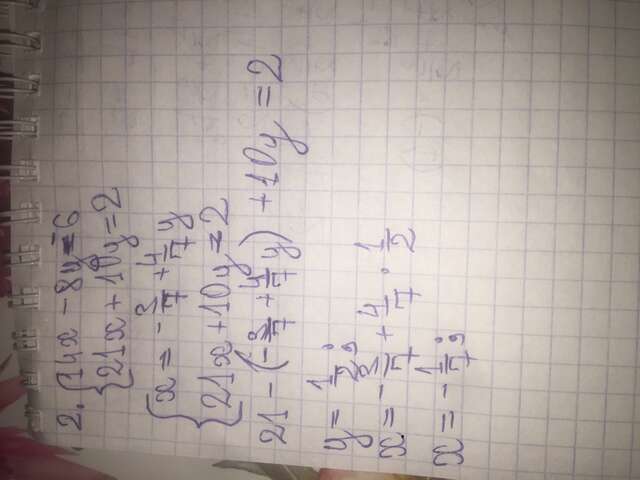 2. { 14x - 8y = -6
{ 21x + 10y = 2
{ x = - 3/7 + 4/7 y
{ 21x + 10y = 2
21 - (- 3/7 + 4/7 y) + 10y = 2
y = 1/2 ;
x = - 3/7 + 4/7 · 1/2
x = - 1/7 ;